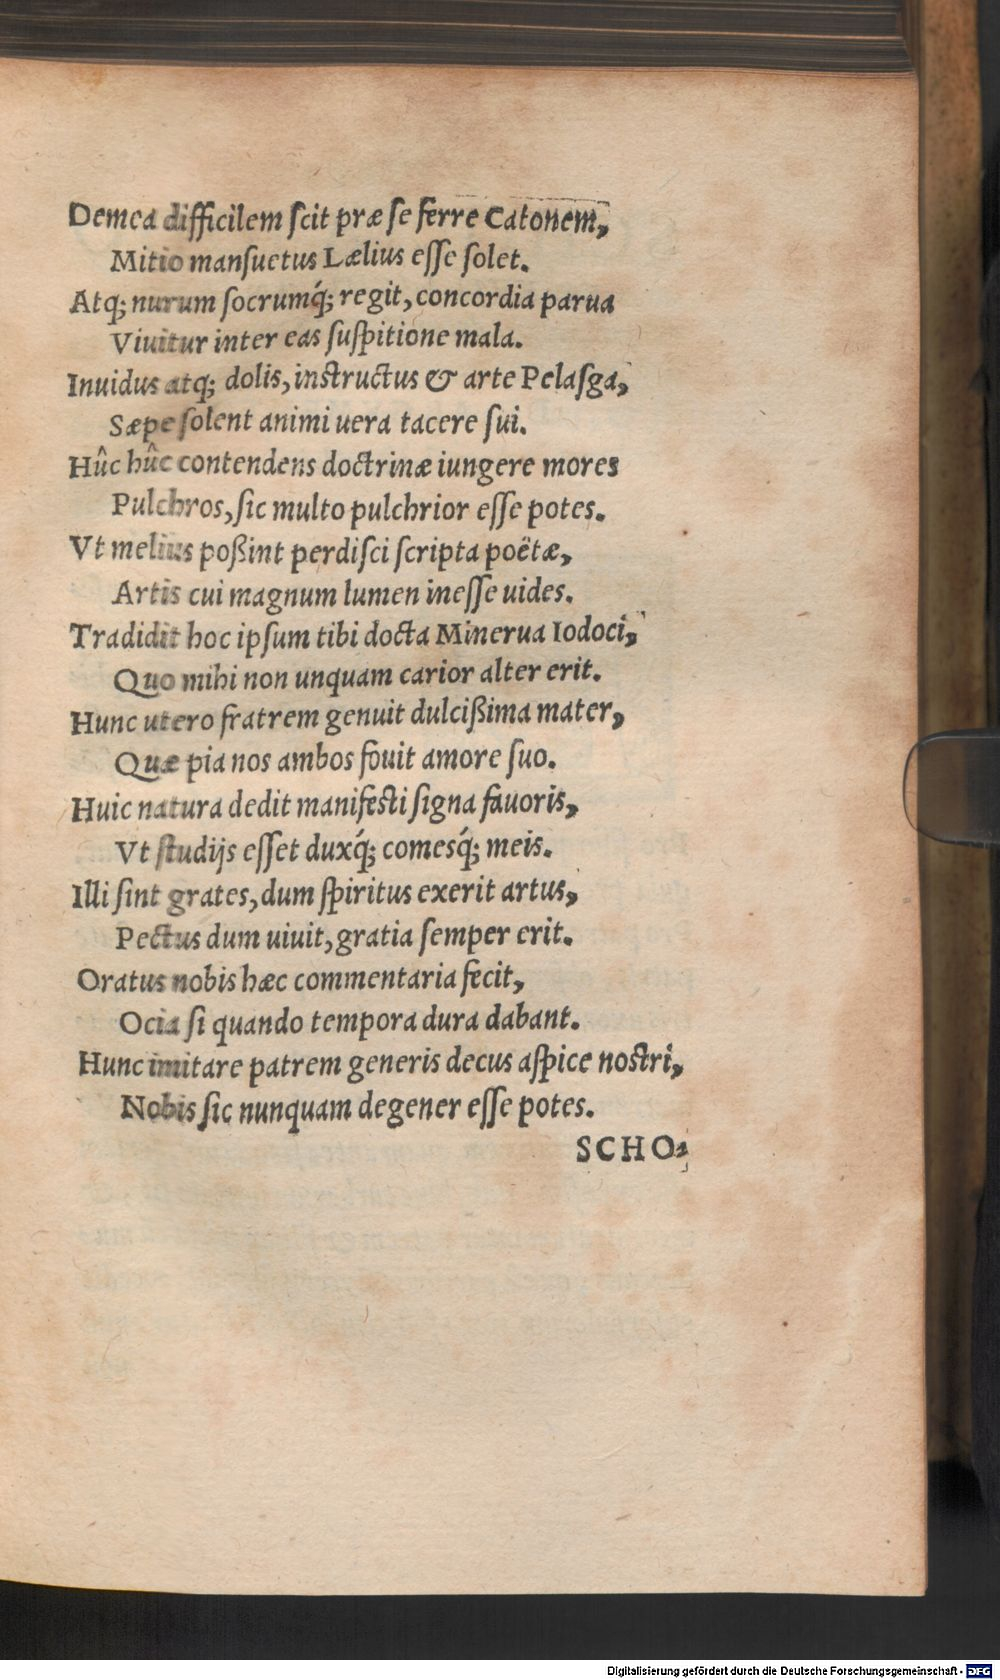 Demea difficilem scit præ se ferre Catonem,
Mitio mansuetus Lælius esse solet.
Atq; nurum socrumq́; regit, concordia parua
Viuitur inter eas suspitione mala.
Inuidus atq; dolis, instructus & arte Pelasga,
Sæpe solent animi uera tacere sui.
Hûc hûc contendens doctrinæ iungere mores
Pulchros, sic multo pulchrior esse potes.
Vt melius poßint perdisci scripta poëtæ,
Artis cui magnum lumen inesse uides.
Tradidit hoc ipsum tibi docta Minerua Iodoci,
Quo mihi non unquam carior alter erit.
Hunc utero fratrem genuit dulcißima mater,
Quæ pia nos ambos fouit amore suo.
Huic natura dedit manifesti signa fauoris,
Vt studijs esset duxq́; comesq́; meis.
Illi sint grates, dum spiritus exerit artus,
Pectus dum uiuit, gratia semper erit.
Oratus nobis hæc commentaria fecit,
Ocia si quando tempora dura dabant.
Hunc imitare patrem generis decus aspice nostri,
Nobis sic nunquam degener esse potes.
SCHO-
Digitalisierung gefördert durch die Deutsche Forschungsgemeinschaft - DFG